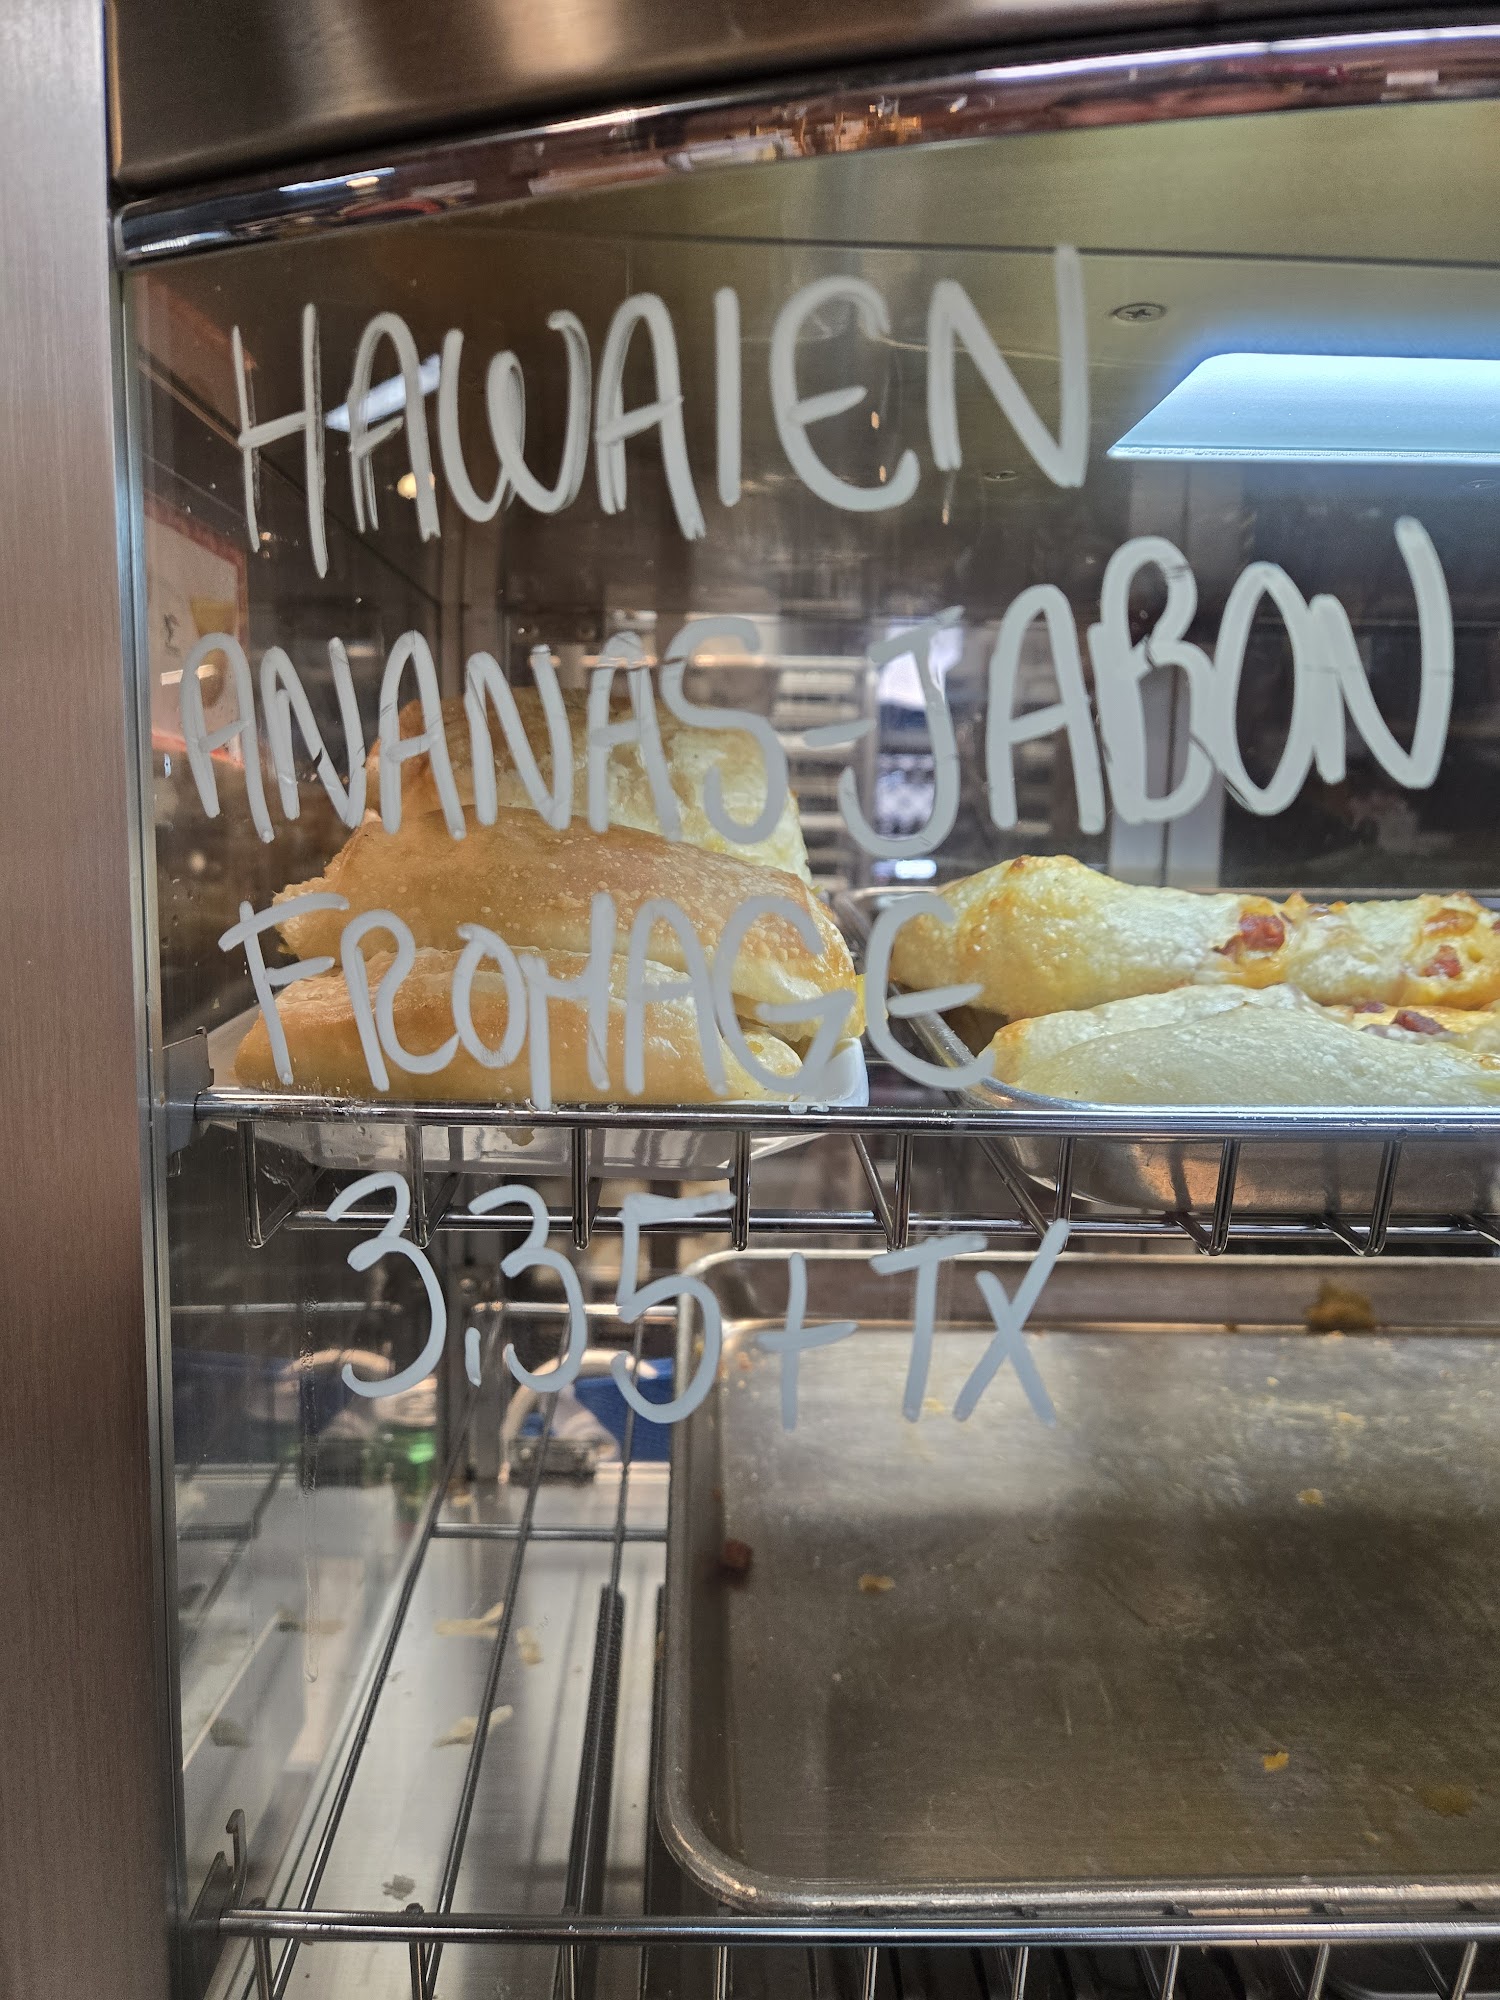 HAWAIEN
ANANAS-JABON
FROMAGE
3,35+TX